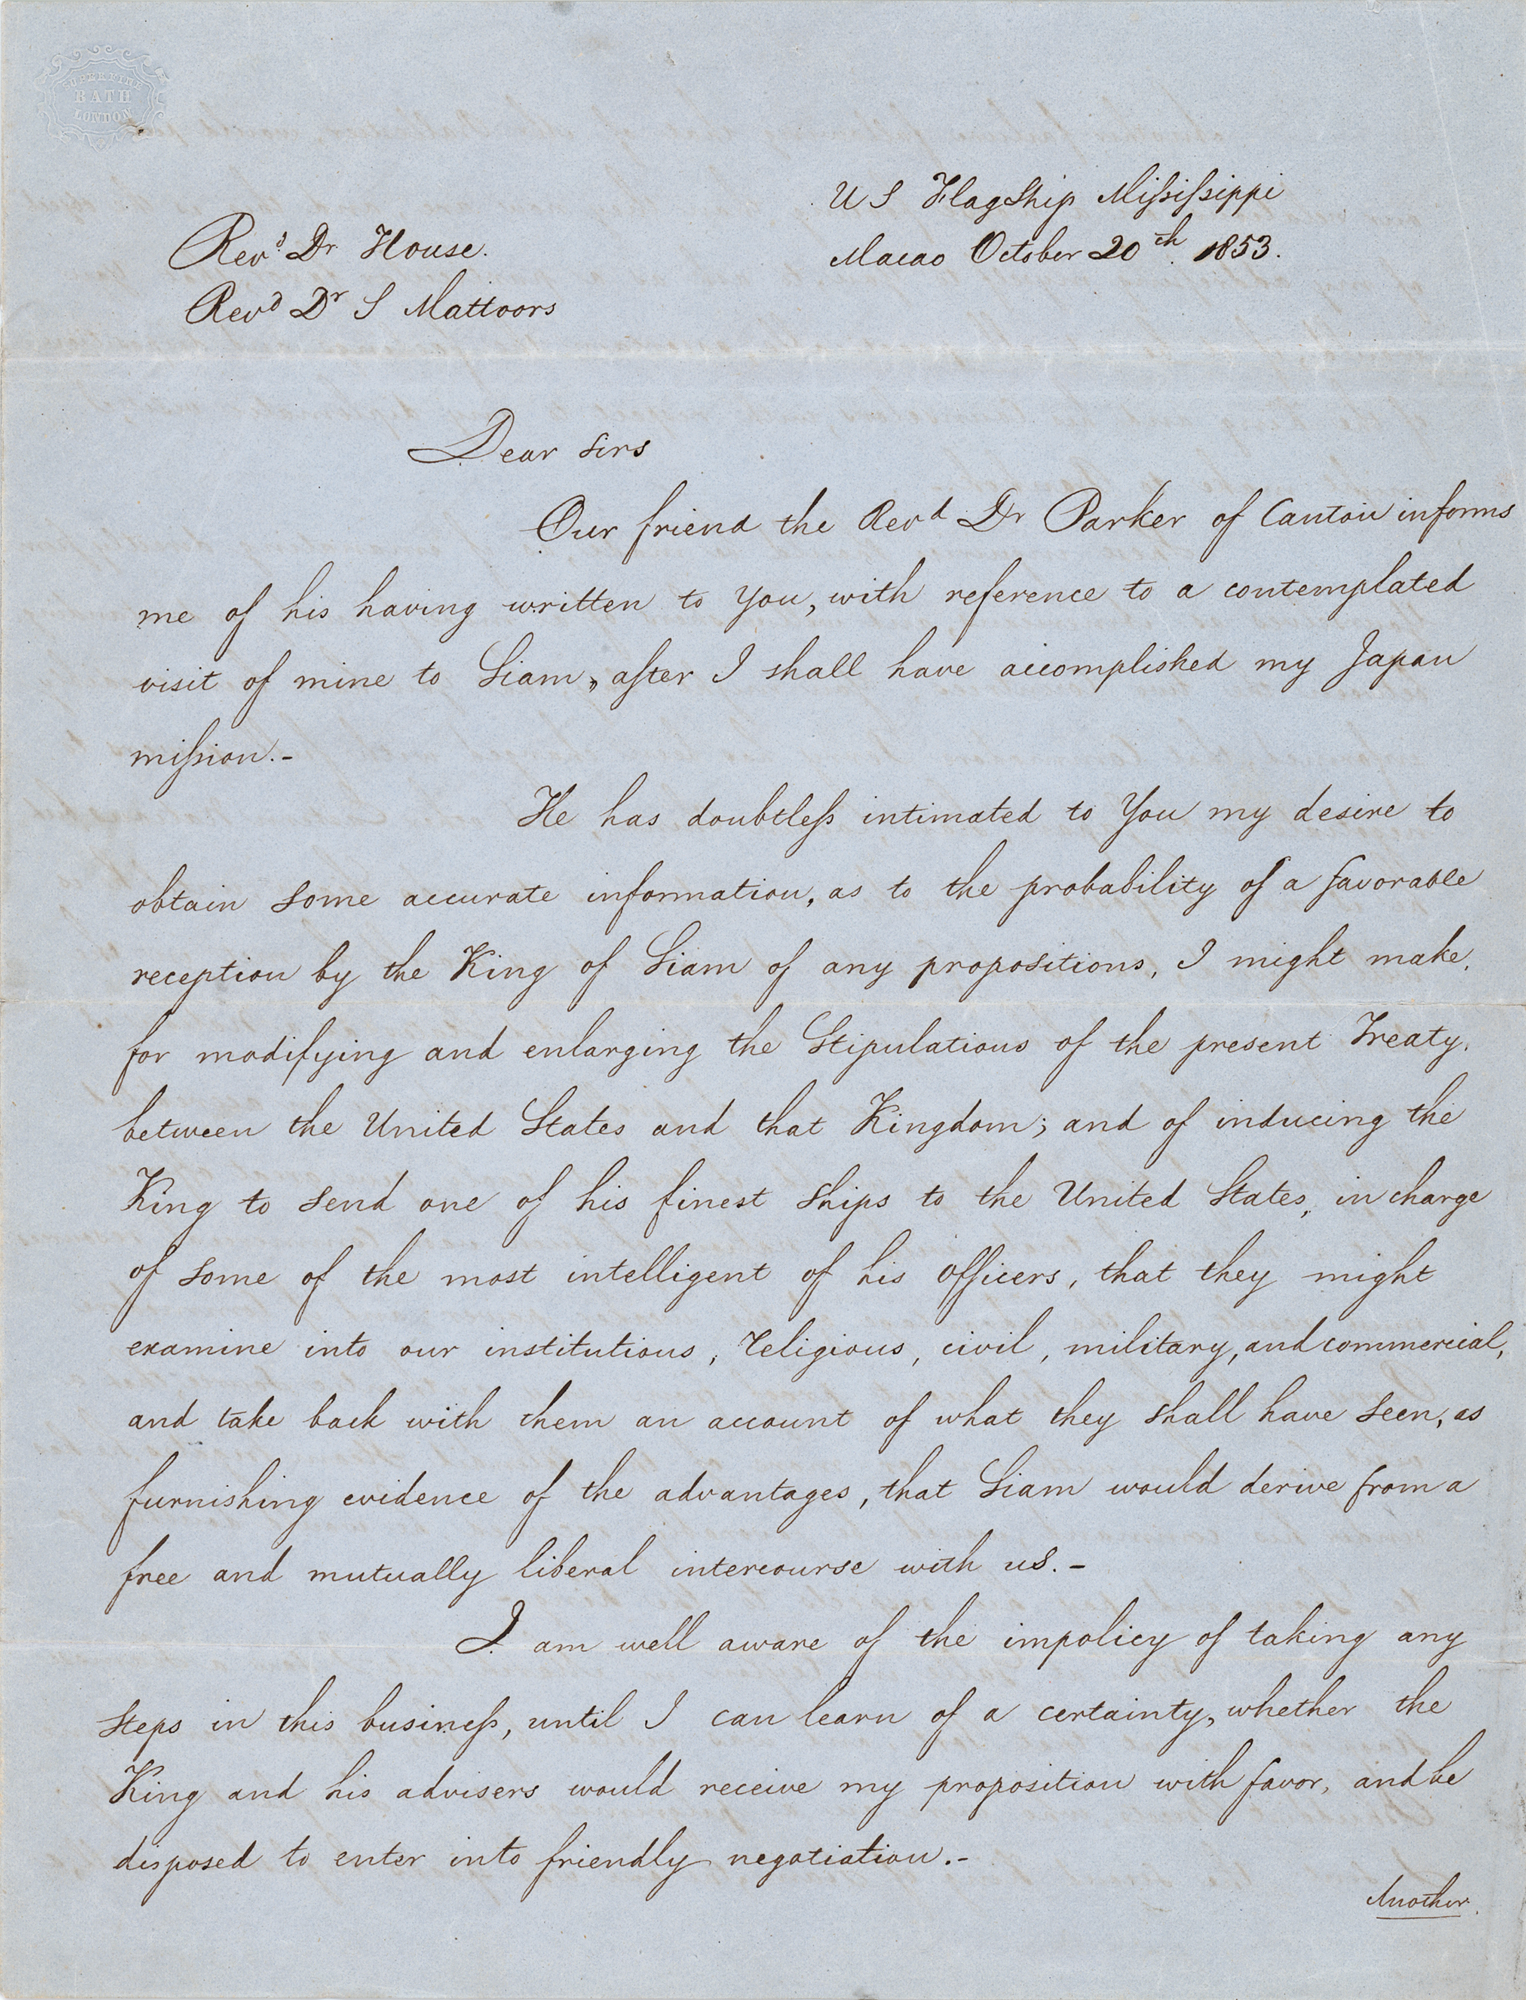 SUPERFINE
BATH
LONDON
US FlagShip Mississippi
Macao October 20th 1853.
Revd Dr House.
Revd Dr S Mattoors
Dear Sirs
Our friend the Revd Dr Parker of Canton informs
me of his having written to You, with reference to a contemplated
visit of mine to Siam, after I shall have accomplished my Japan
mission.-
He has doubtless intimated to You my desire to
obtain some accurate information, as to the probability of a favorable
reception by the King of Siam of any propositions, I might make,
for modifying and enlarging the Stipulations of the present Treaty,
between the United States and that Kingdom; and of inducing the
King to send one of his finest ships to the United States, in charge
of some of the most intelligent of his officers, that they might
examine into our institutions, religious, civil, military, and commercial,
and take back with them an account of what they shall have seen, as
furnishing evidence of the advantages, that Siam would derive from a
free and mutually liberal intercourse with us.-
I am well aware of the impolicy of taking any
steps in this business, until I can learn of a certainty, whether the
King and his advisers would receive my proposition with favor, and be
disposed to enter into friendly negotiation.-
Another